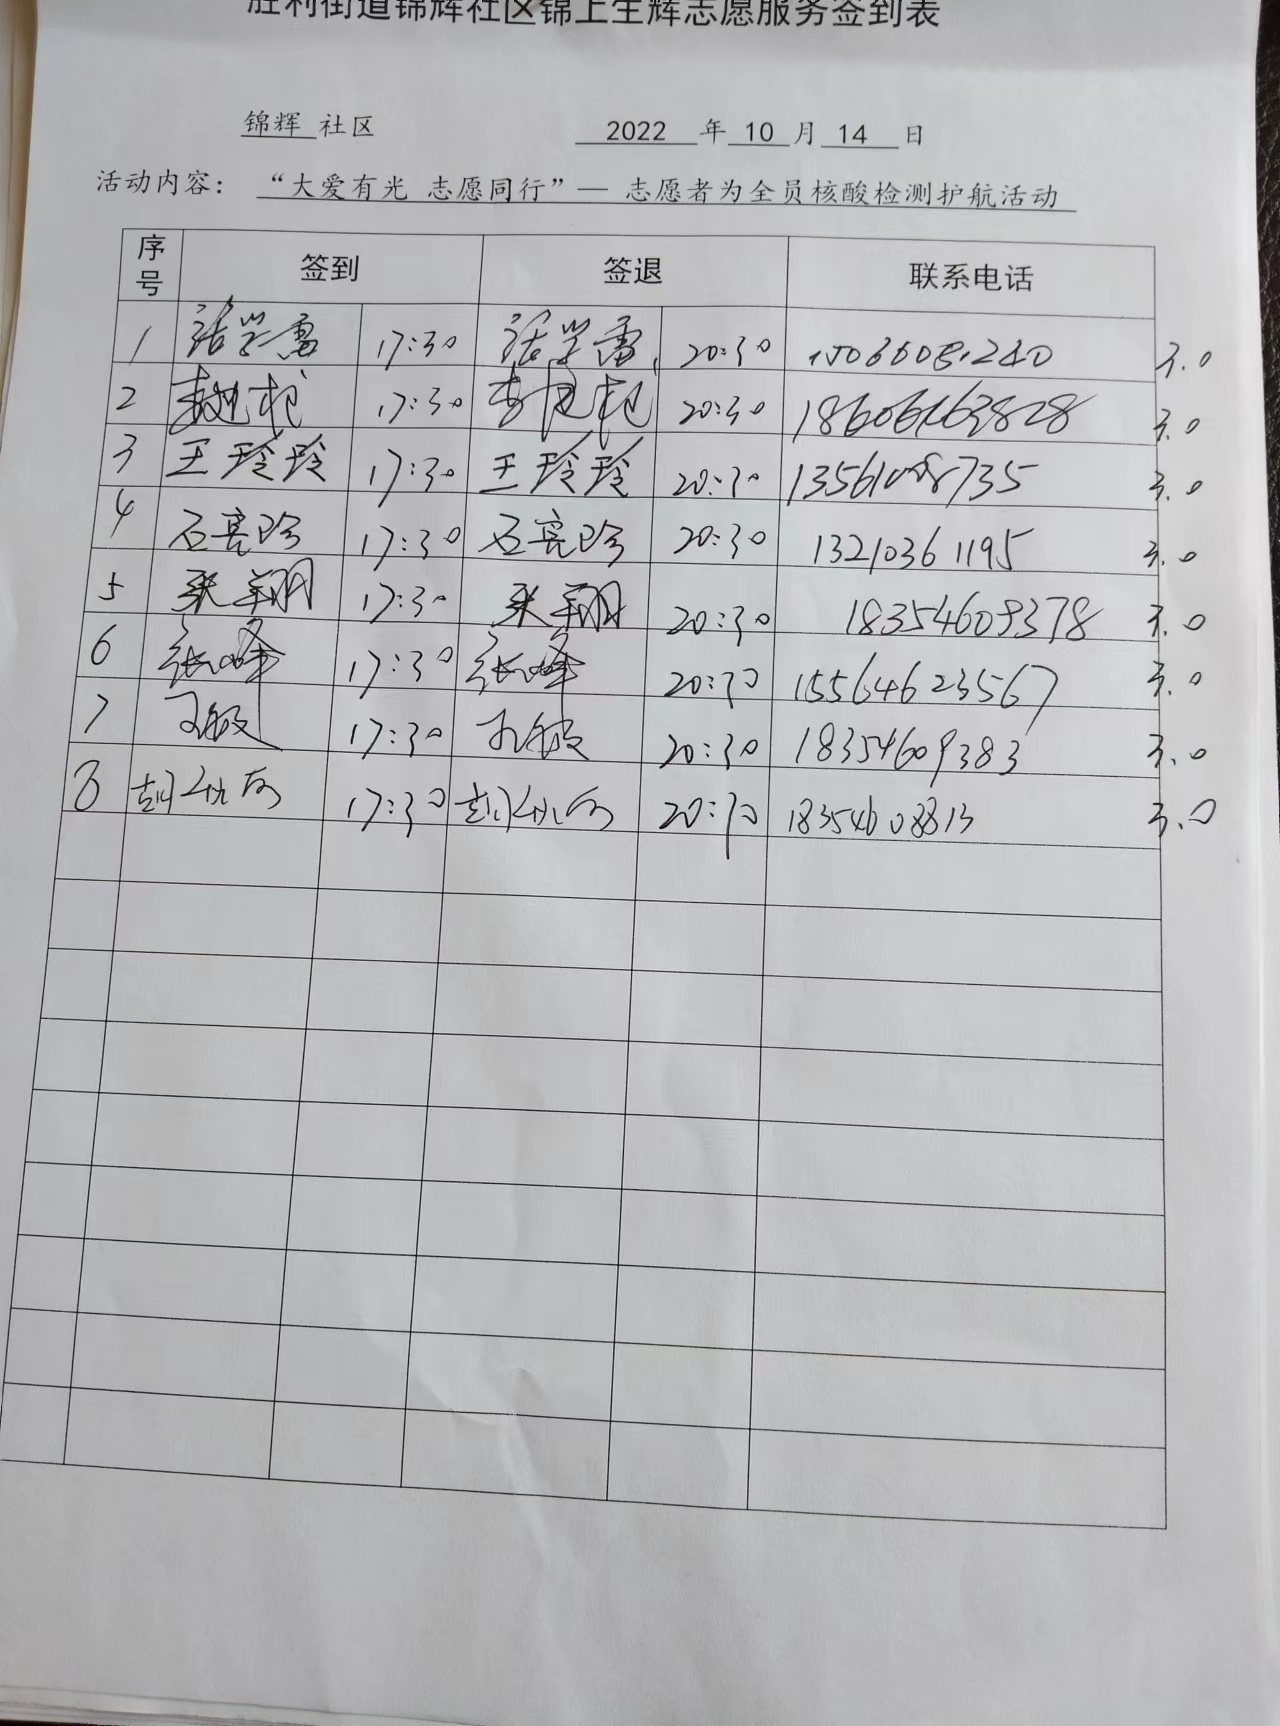 胜利街道锦辉社区锦上生辉志愿服务签到表
锦辉 社区 2022 年 10 月 14 日
活动内容： “大爱有光 志愿同行”— 志愿者为全员核酸检测护航活动
序号 签到 签退 联系电话
1 17:30 20:30 3.0
2 17:30 20:30 3.0
3 王玲玲 17:30 王玲玲 20:30 3.0
4 石亮玲 17:30 石亮玲 20:30 13210361195 3.0
5 17:30 20:30 18354609378 3.0
6 张峰 17:30 张峰 20:30 15564623567 3.0
7 17:30 20:30 18354609383 3.0
8 17:30 20:30 18354608813 3.0